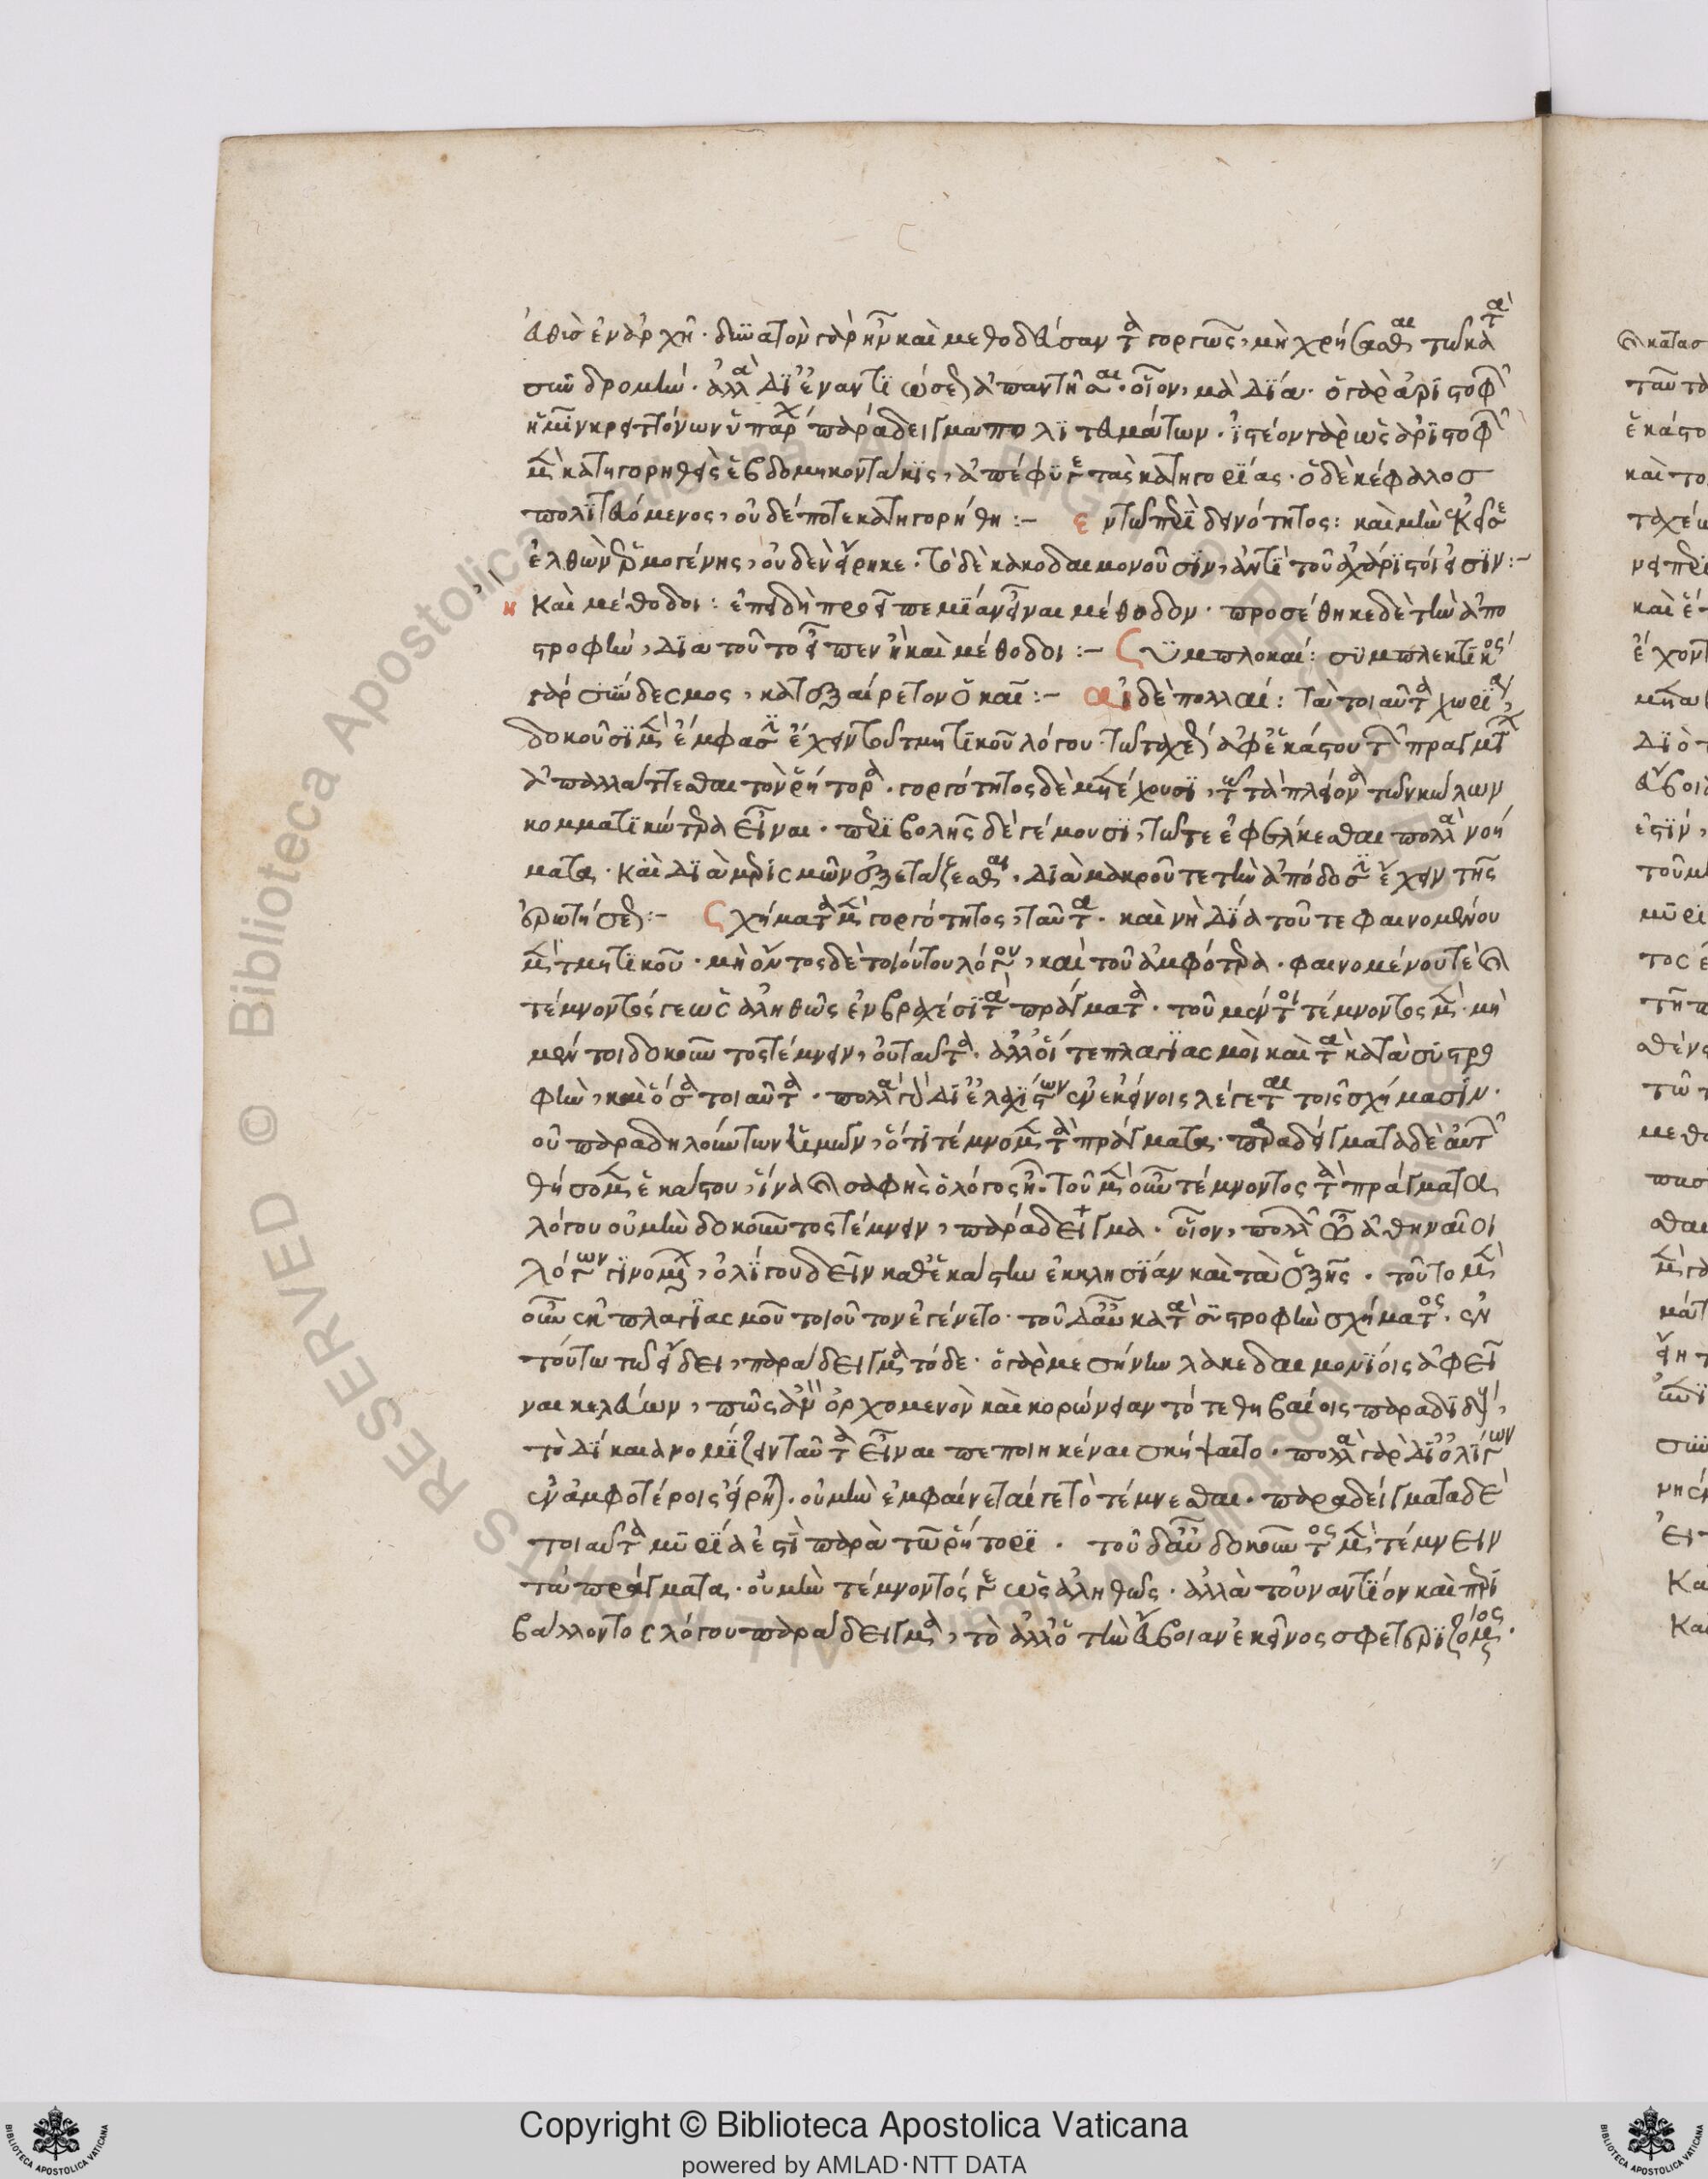 εὐθὺς ἐν ἀρχῆ · δυνατὸν γὰρ ἦν καὶ μεθοδεύσαντα γοργῶς, μὴ χρήσασθαι τῶ κατὰ
συνδρομὴν · ἀλλὰ δι' ἐναντιώσεως ἀπαντῆσαι · οἷον, μὰ δία · ὁ γὰρ ἀριστοφῶν
ἡμῖν κρειττόνων ὑπάρχει παράδειγμα πολιτευμάτων · ἰστέον γὰρ ὡς ἀριστοφῶν
μὲν κατηγορηθεὶς ἑβδομηκοντάκις, ἀπέφυγε τὰς κατηγορίας · ὁ δὲ κέφαλος
πολιτευόμενος, οὐδέποτε κατηγορήθη :- ἐν τῶ περὶ δεινότητος: καὶ μὴν ἐκεῖσε
ἐλθὼν ἑρμογένης, οὐδὲν εἴρηκε · τὸ δὲ κακοδαιμονοῦσιν, ἀντὶ τοῦ ἀχάριστοί εἰσιν :-
ἢ καὶ μέθοδοι : ἐπειδὴ προεῖπε μίαν εἶναι μέθοδον · προσέθηκε δὲ τὴν ἀπο
στροφὴν, διὰ τοῦτο εἶπεν ἢ καὶ μέθοδοι :- Συμπλοκαί: συμπλεκτικὸς
γὰρ σύνδεσμος, κατ' ἐξαίρετον ὁ καί :- αἱ δὲ πολλαί: τὰ τοιαῦτα χωρία,
δοκοῦσι μὲν ἔμφασιν ἔχειν τοῦ τμητικοῦ λόγου · τῶ ταχέως ἀφ' ἑκάστου τῶν πραγμάτων
ἀπαλλάττεσθαι τὸν ῥήτορα · γοργότητος δὲ μὲν ἔχουσι, τῶ τὰ πλείονα τῶν κώλων
κομματικώτερα εἶναι · περιβολῆς δὲ γέμουσι, τῶ τε ἐφέλκεσθαι πολλὰ νοή
ματα · καὶ διὰ μερισμῶν ἐξετάζεσθαι, διὰ μακροῦ τε τὴν ἀπόδοσιν ἔχειν τῆς
ἐρωτήσεως :- Σχήματα μὲν γοργότητος, ταῦτα · καὶ νὴ δία τοῦ τε φαινομένου
μὲν τμητικοῦ · μὴ ὄντος δὲ τοιούτου λόγου, καὶ τοῦ ἀμφότερα · φαινομένου τὲ καὶ
τέμνοντός γε ὡς ἀληθῶς ἐν βραχέσι τὰ πράγματα · τοῦ μέντοι τέμνοντος μὲν · μὴ
μέν τοι δοκοῦντος τέμνειν, οὐ ταῦτα · ἀλλ' οἵ τε πλαγιασμοὶ καὶ τὰ κατὰ συστρο
φὴν, καὶ ὅσα τοιαῦτα · πολλὰ γὰρ δι' ἐλαχίστων ἐν ἐκείνοις λέγεται τοῖς σχήμασιν ·
οὐ παραδηλούντων ἡμῶν, ὅτι τέμνομεν τὰ πράγματα · παραδείγματα δὲ αὐτῶν
θήσομεν ἑκάστου, ἵνα καὶ σαφὴς ὁ λόγος ἦ · τοῦ μὲν οὖν τέμνοντος τὰ πράγματα
λόγου οὐ μὴν δοκοῦντος τέμνειν, παράδειγμα · οἷον, πολλῶν ὦ ἀθηναῖοι
λόγων γινομένων, ὀλίγου δεῖν καθ' ἑκάστην ἐκκλησίαν καὶ τὰ ἑξῆς · τοῦτο μὲν
οὖν ἐκ πλαγιασμοῦ τοιοῦτον ἐγένετο · τοῦ δ' αὖ κατὰ συστροφὴν σχήματος · ἐν
τούτω τῶ εἴδει, παράδειγμα τόδε · ὁ γὰρ μεσήνην λακεδαιμονίοις ἀφεῖ
ναι κελεύων, πῶς ἂν ὀρχομενὸν καὶ κορώνειαν τότε θηβαίοις παραδιδοὺς,
τὸ δίκαια νομίζειν ταῦτα εἶναι πεποιηκέναι σκήψαιτο · πολλὰ γὰρ δι' ὀλίγων
ἐν ἀμφοτέροις εἴρηται · οὐ μὴν ἐμφαίνεταί γε τὸ τέμνεσθαι · παραδείγματα δὲ
τοιαῦτα μυρία ἐστὶ παρὰ τῶ ῥήτορι · τοῦ δ' αὖ δοκοῦντος μὲν τέμνειν
τὰ πράγματα · οὐ μὴν τέμνοντός γε ὡς ἀληθῶς · ἀλλὰ τοὐναντίον καὶ περι
βάλλοντος λόγου παράδειγμα, τὸ ἀλλ' ὁ τὴν εὔβοιαν ἐκεῖνος σφετεριζόμενος ·
Copyright © Biblioteca Apostolica Vaticana
powered by AMLAD·NTT DATA